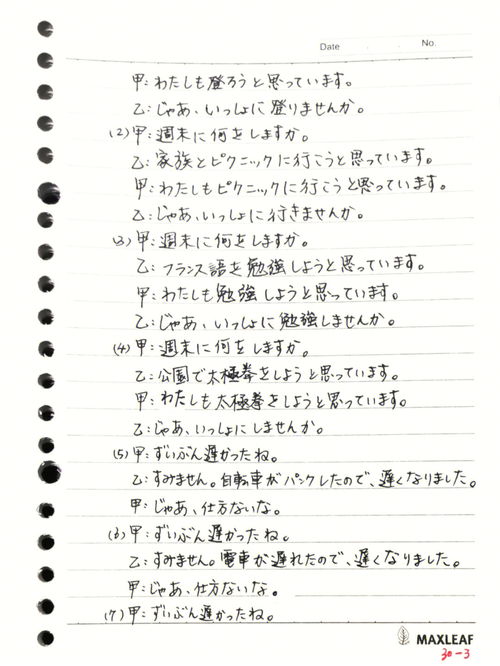 Date	No.
甲：わたしも登ろうと思っています。
乙：じゃあ、いっしょに登りませんか。
(2) 甲：週末に何をしますか。
乙：家族とピクニックに行こうと思っています。
甲：わたしもピクニックに行こうと思っています。
乙：じゃあ、いっしょに行きませんか。
(3) 甲：週末に何をしますか。
乙：フランス語を勉強しようと思っています。
甲：わたしも勉強しようと思っています。
乙：じゃあ、いっしょに勉強しませんか。
(4) 甲：週末に何をしますか。
乙：公園で太極拳をしようと思っています。
甲：わたしも太極拳をしようと思っています。
乙：じゃあ、いっしょにしませんか。
(5) 甲：ずいぶん遅かったね。
乙：すみません。自転車がパンクしたので、遅くなりました。
甲：じゃあ、仕方ないな。
(6) 甲：ずいぶん遅かったね。
乙：すみません。電車が遅れたので、遅くなりました。
甲：じゃあ、仕方ないな。
(7) 甲：ずいぶん遅かったね。
MAXLEAF
30-3